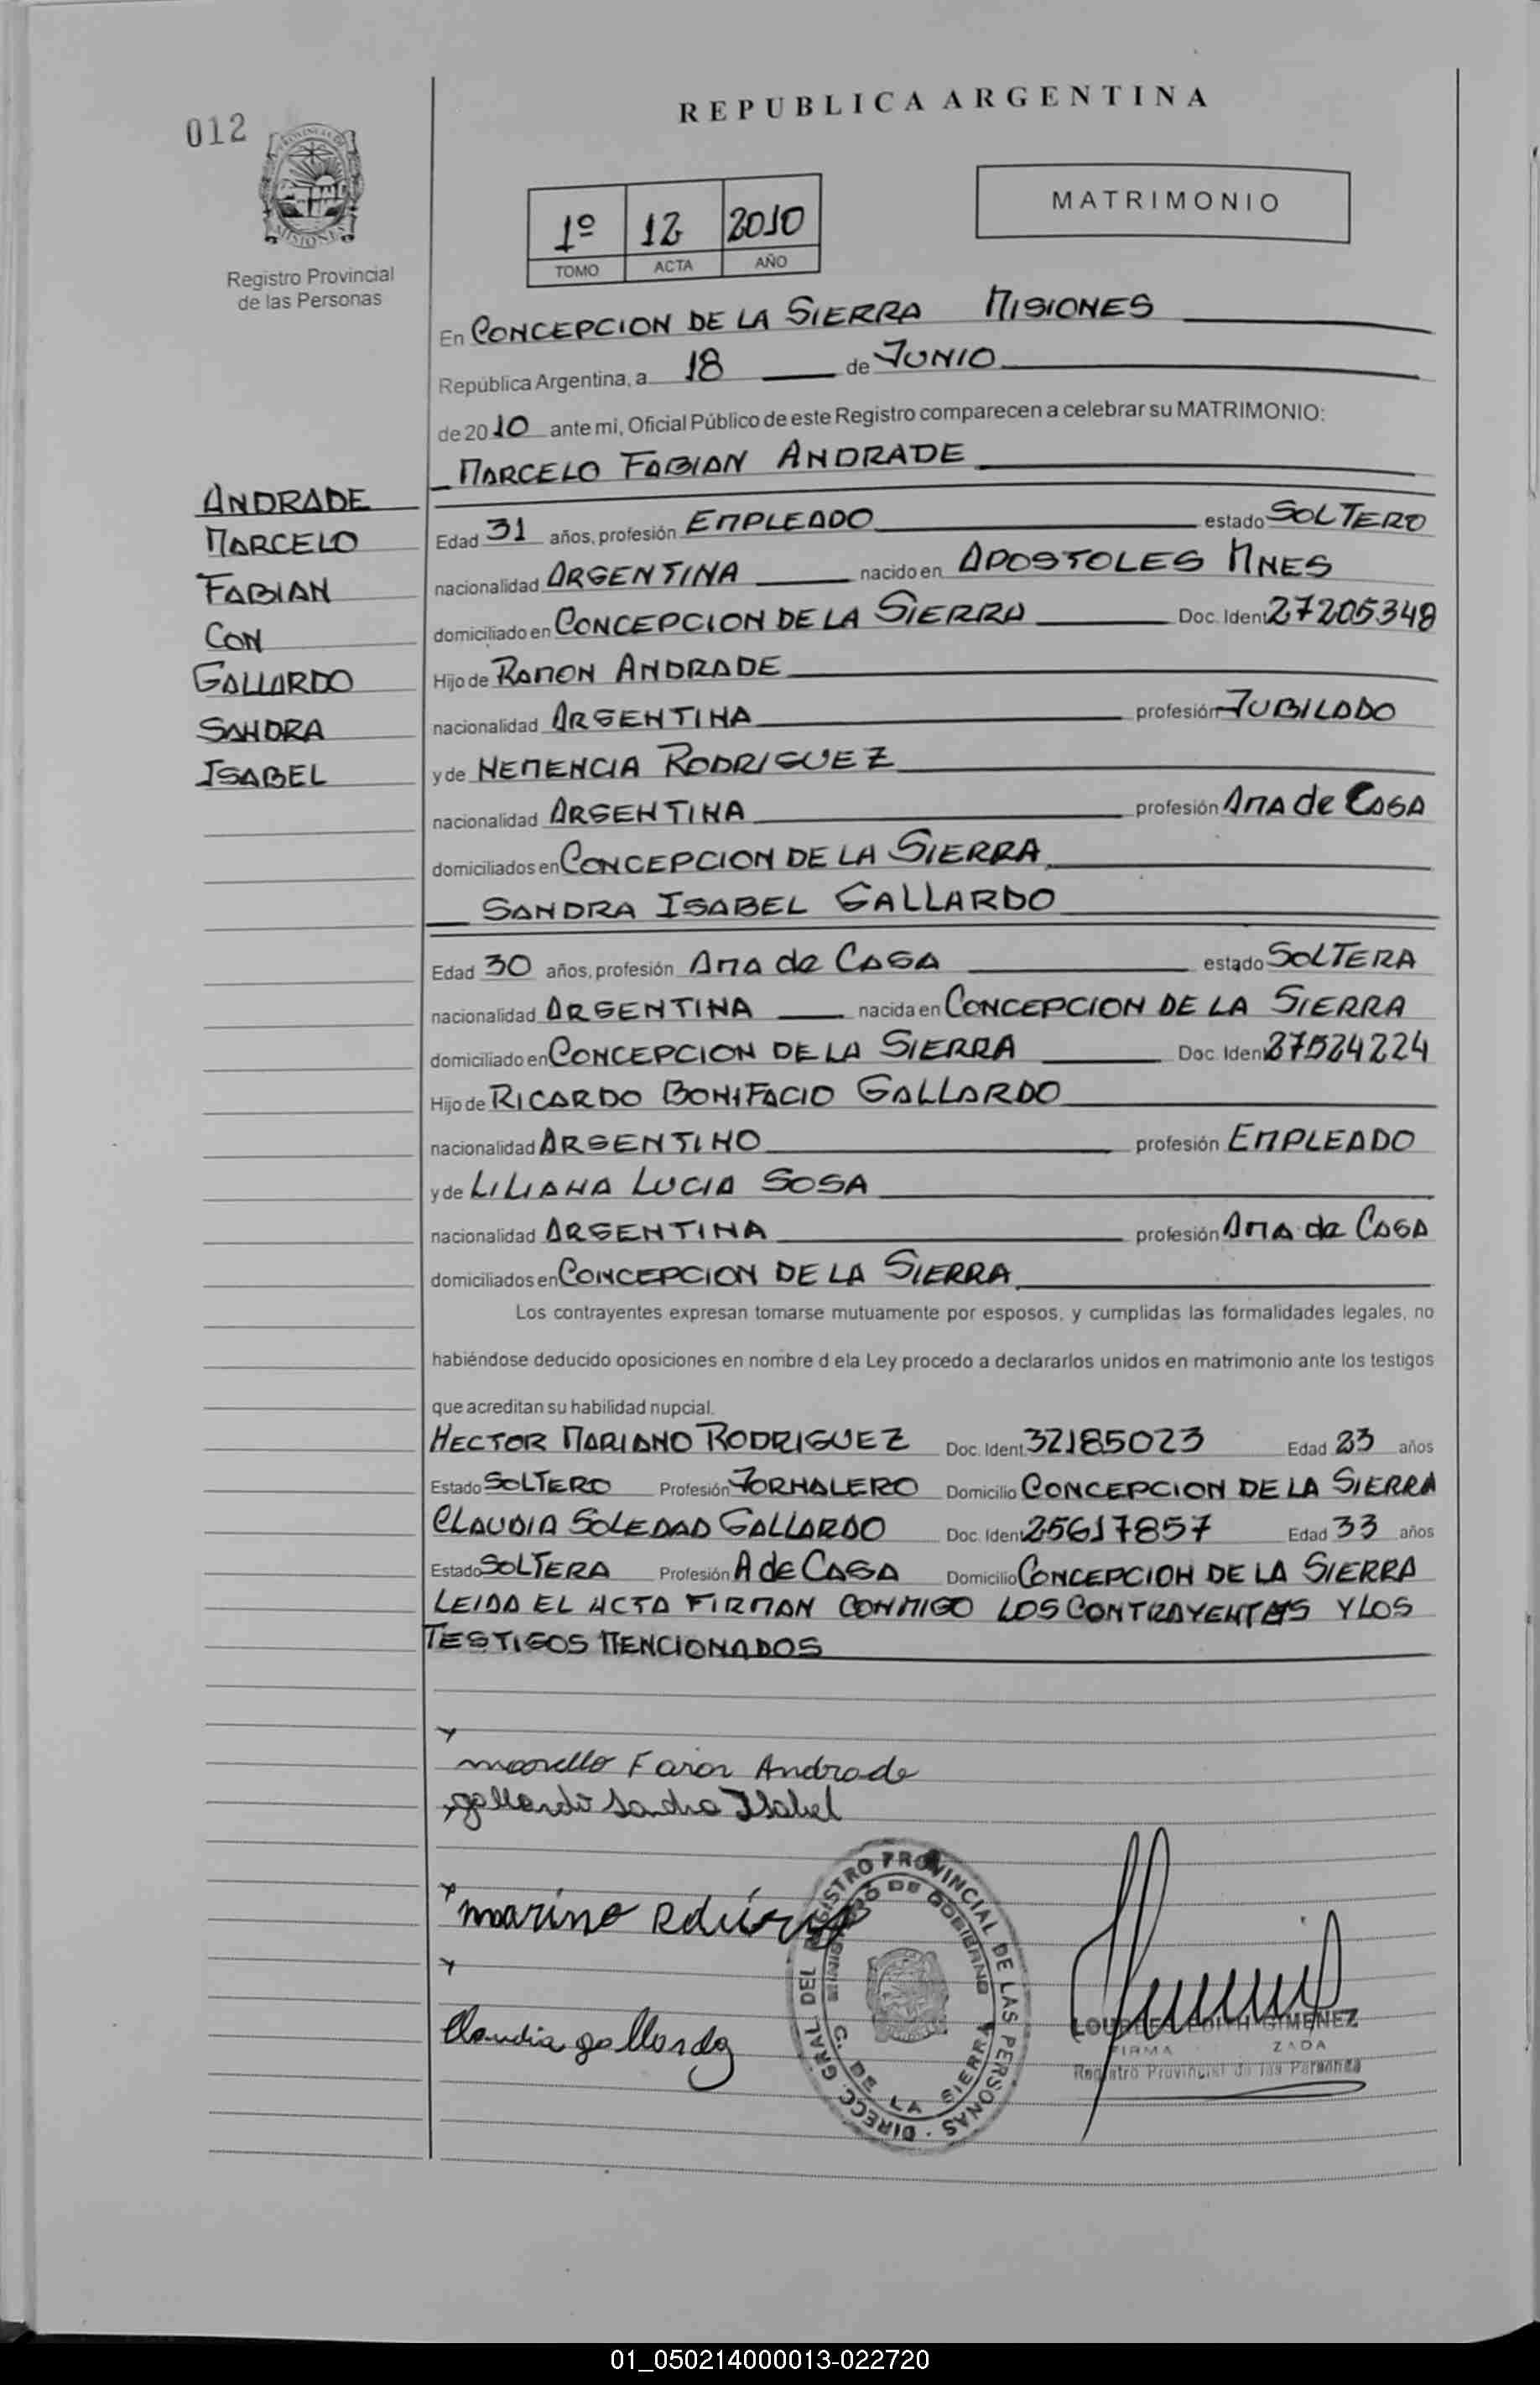 REPUBLICA ARGENTINA
012
PROVINCIA DE MISIONES
Registro Provincial
de las Personas
1º 12 2010
TOMO ACTA AÑO
MATRIMONIO
En CONCEPCION DE LA SIERRA MISIONES
República Argentina, a 18 de JUNIO
de 2010 ante mi, Oficial Público de este Registro comparecen a celebrar su MATRIMONIO:
MARCELO FABIAN ANDRADE
ANDRADE
MARCELO
FABIAN
CON
GALLARDO
SANDRA
ISABEL
Edad 31 años, profesión EMPLEADO estado SOLTERO
nacionalidad ARGENTINA nacido en APOSTOLES MNES
domiciliado en CONCEPCION DE LA SIERRA Doc. Ident 27205348
Hijo de RAMON ANDRADE
nacionalidad ARGENTINA profesión JUBILADO
y de HEMENCIA RODRIGUEZ
nacionalidad ARGENTINA profesión AMA de CASA
domiciliados en CONCEPCION DE LA SIERRA
SANDRA ISABEL GALLARDO
Edad 30 años, profesión AMA de CASA estado SOLTERA
nacionalidad ARGENTINA nacida en CONCEPCION DE LA SIERRA
domiciliado en CONCEPCION DE LA SIERRA Doc. Iden
Hijo de RICARDO BONIFACIO GALLARDO
nacionalidad ARGENTINO profesión EMPLEADO
y de LILIANA LUCIA SOSA
nacionalidad ARGENTINA profesión AMA de CASA
domiciliados en CONCEPCION DE LA SIERRA
Los contrayentes expresan tomarse mutuamente por esposos, y cumplidas las formalidades legales, no
habiéndose deducido oposiciones en nombre d ela Ley procedo a declararlos unidos en matrimonio ante los testigos
que acreditan su habilidad nupcial.
HECTOR MARIANO RODRIGUEZ Doc. Ident. 32185023 Edad 23 años
Estado SOLTERO Profesión JORNALERO Domicilio CONCEPCION DE LA SIERRA
CLAUDIA SOLEDAD GALLARDO Doc. Iden 25617857 Edad 33 años
Estado SOLTERA Profesión A de CASA Domicilio CONCEPCION DE LA SIERRA
LEIDA EL ACTA FIRMAN CONMIGO LOS CONTRAYENTES Y LOS
TESTIGOS MENCIONADOS
Andrade
gallardo Sandra Isabel
marino
Claudia gallardo
DIRECC. GRAL DEL REGISTRO PROVINCIAL DE LAS PERSONAS
MINISTERIO DE GOBIERNO
C. DE LA SIERRA
EDITH GIMENEZ
FIRMA ZADA
Registro Provincial de las Personas
01_050214000013-022720